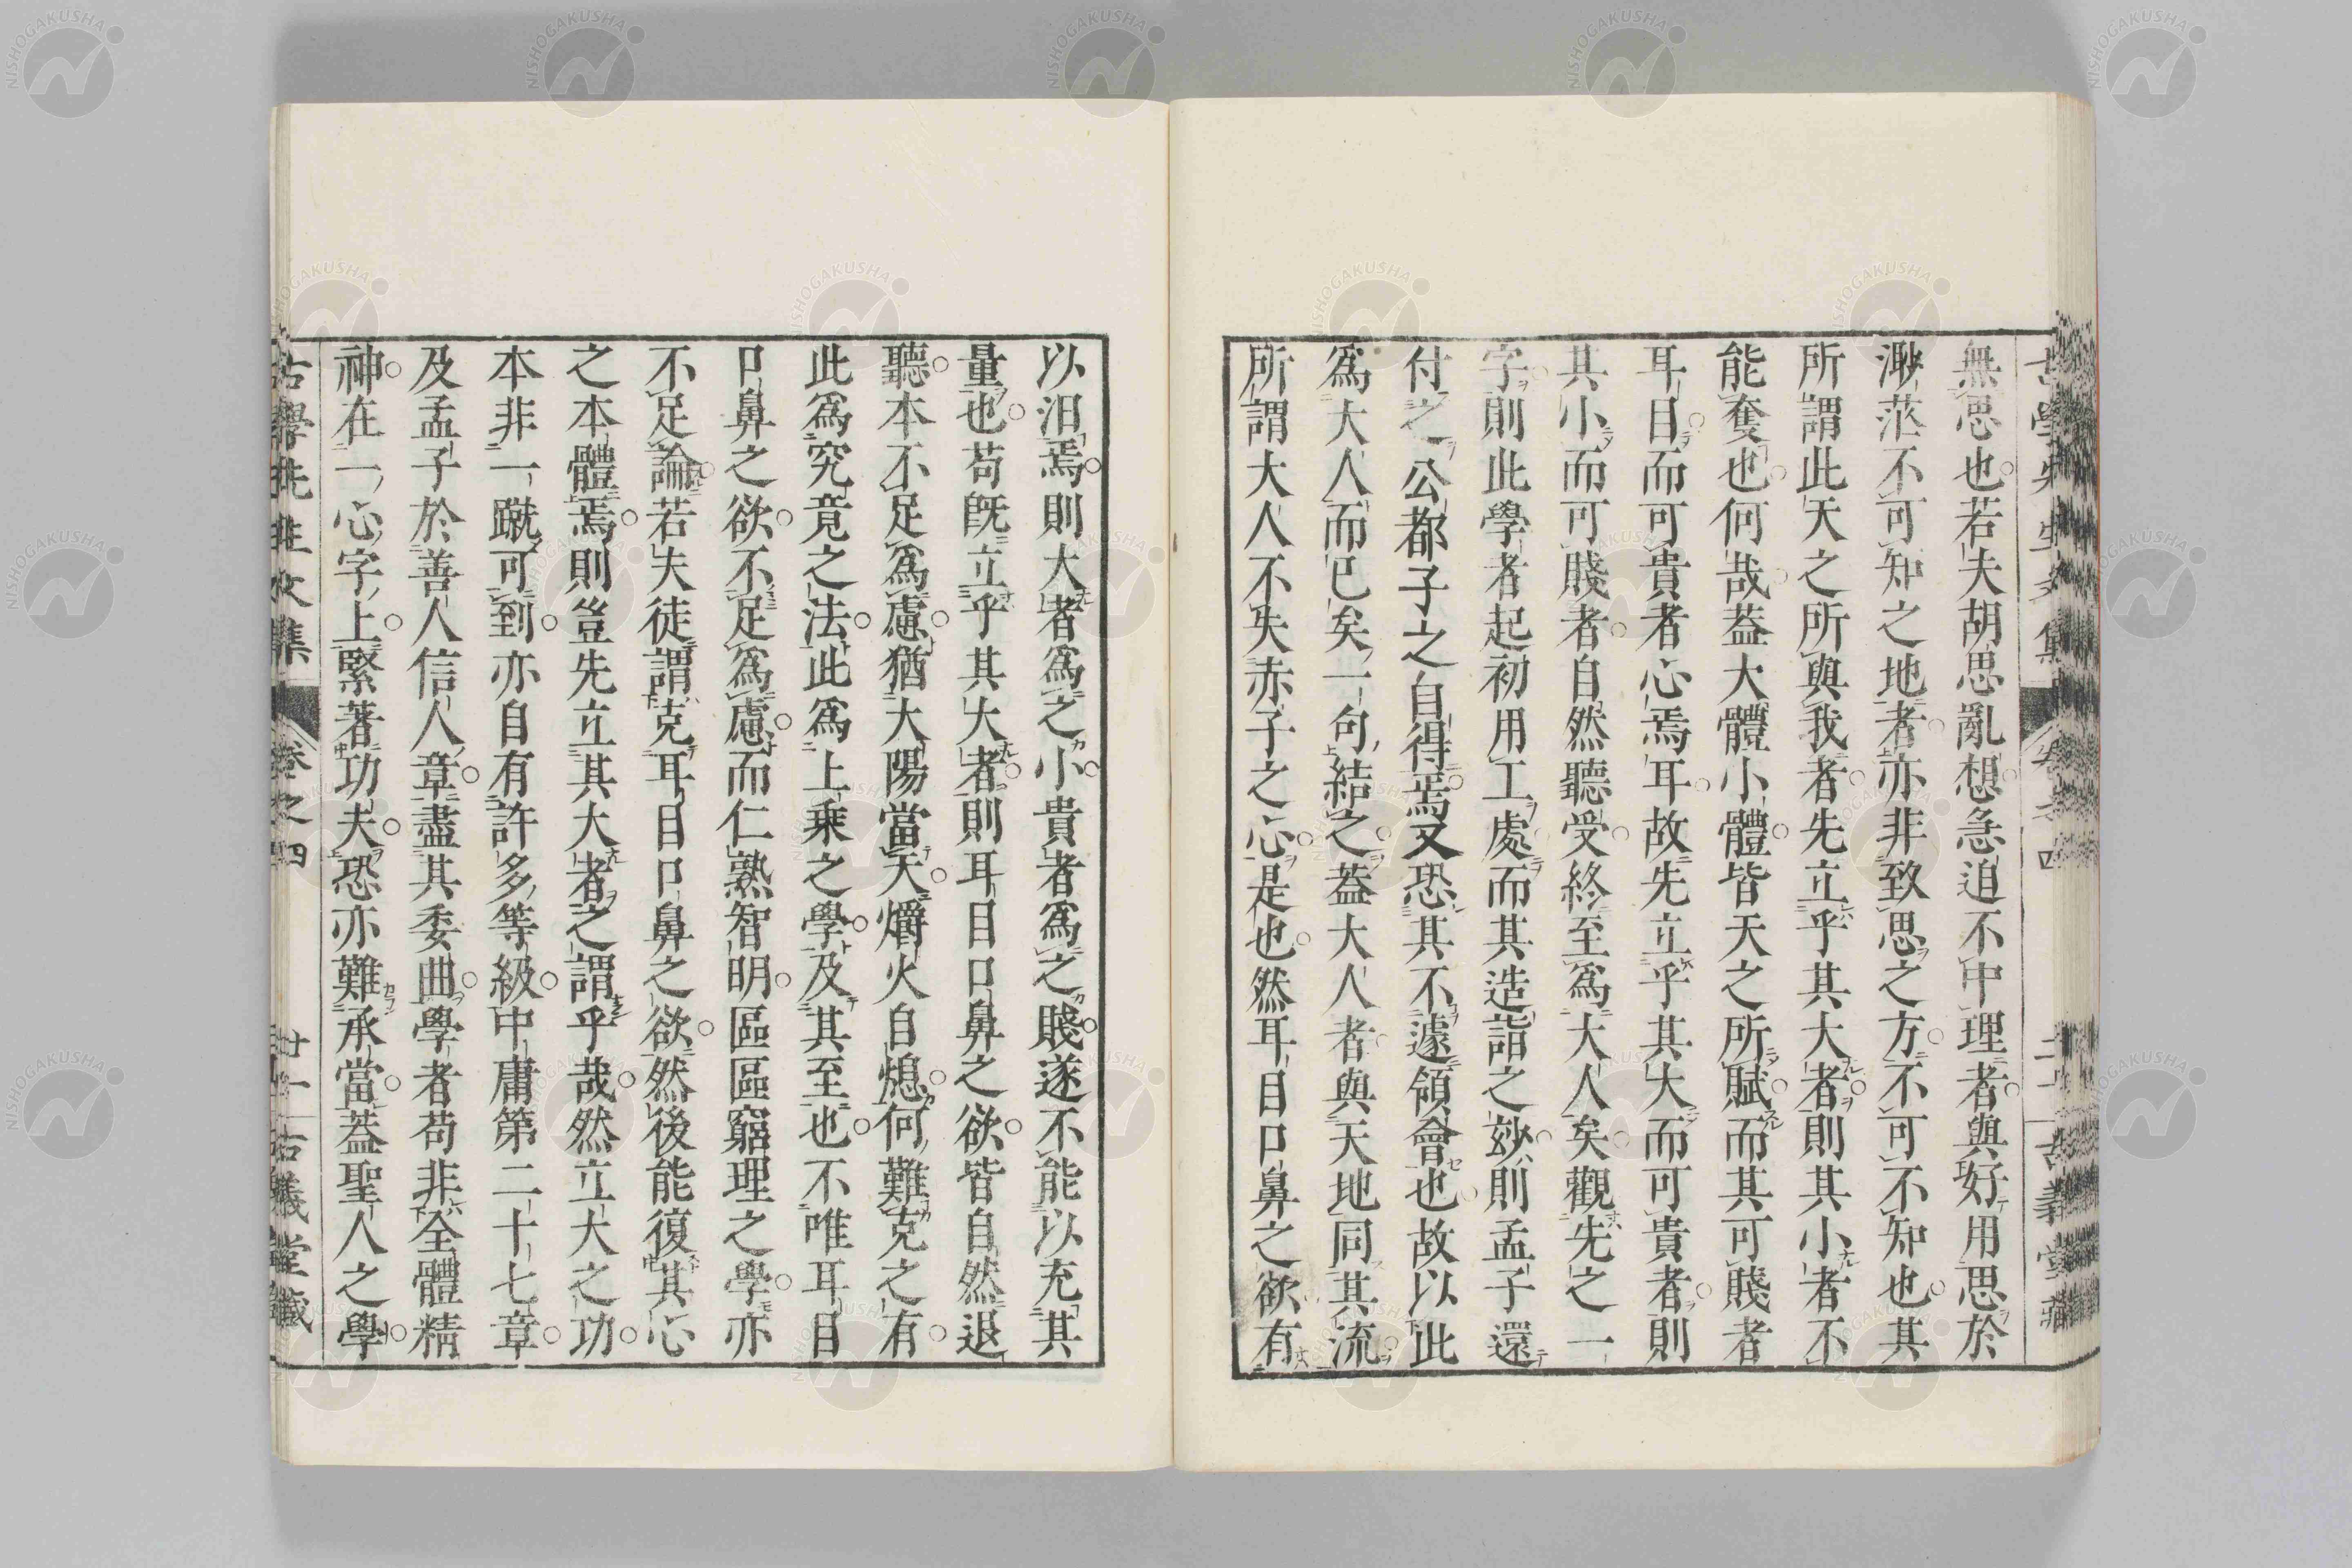 無思也若夫胡思亂想急迫不中理者與好用思於
渺茫不可知之地者亦非致思之方不可不知也其
所謂此天之所與我者先立乎其大者則其小者不
能奪也何哉蓋大體小體皆天之所賦而其可賤者
耳目而可貴者心焉耳故先立乎其大而可貴者則
其小而可賤者自然聽受終至爲大人矣觀先之一
字則此學者起初用工處而其造詣之玅則孟子還
付之公都子之自得焉又恐其不遽領會也故以此
爲大人而已矣一句結之蓋大人者與天地同其流
所謂大人不失赤子之心是也然耳目口鼻之欲有
以汨焉則大者爲之小貴者爲之賤遂不能以充其
量也苟旣立乎其大者則耳目口鼻之欲皆自然退
聽本不足爲慮猶大陽當天爝火自熄何難克之有
此爲究竟之法此爲上乘之學及其至也不唯耳目
口鼻之欲不足爲慮而仁熟智明區區窮理之學亦
不足論若夫徒謂克耳目口鼻之欲然後能復其心
之本體焉則豈先立其大者之謂乎哉然立大之功
本非一蹴可到亦自有許多等級中庸第二十七章
及孟子於善人信人章盡其委曲學者苟非全體精
神在一心字上緊著功夫恐亦難承當蓋聖人之學
古學先生文集 卷之四 廿一 古義堂藏